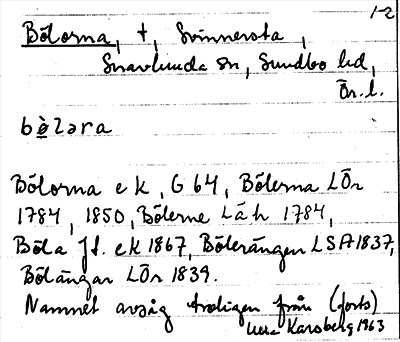 1-2
Bölorna, †, Svinnersta,
Snavlunda sn, Sundbo hd,
Ör. l.
bö̀lǝra
Bölorna ek, G 64, Bölerna LÖr
1784, 1850, Bölerne Läh 1784,
Böla Jf. ek 1867, Bölerängen LSA 1837,
Bölängar LÖr 1839.
Namnet avsåg troligen från (forts)
Karsberg 1963